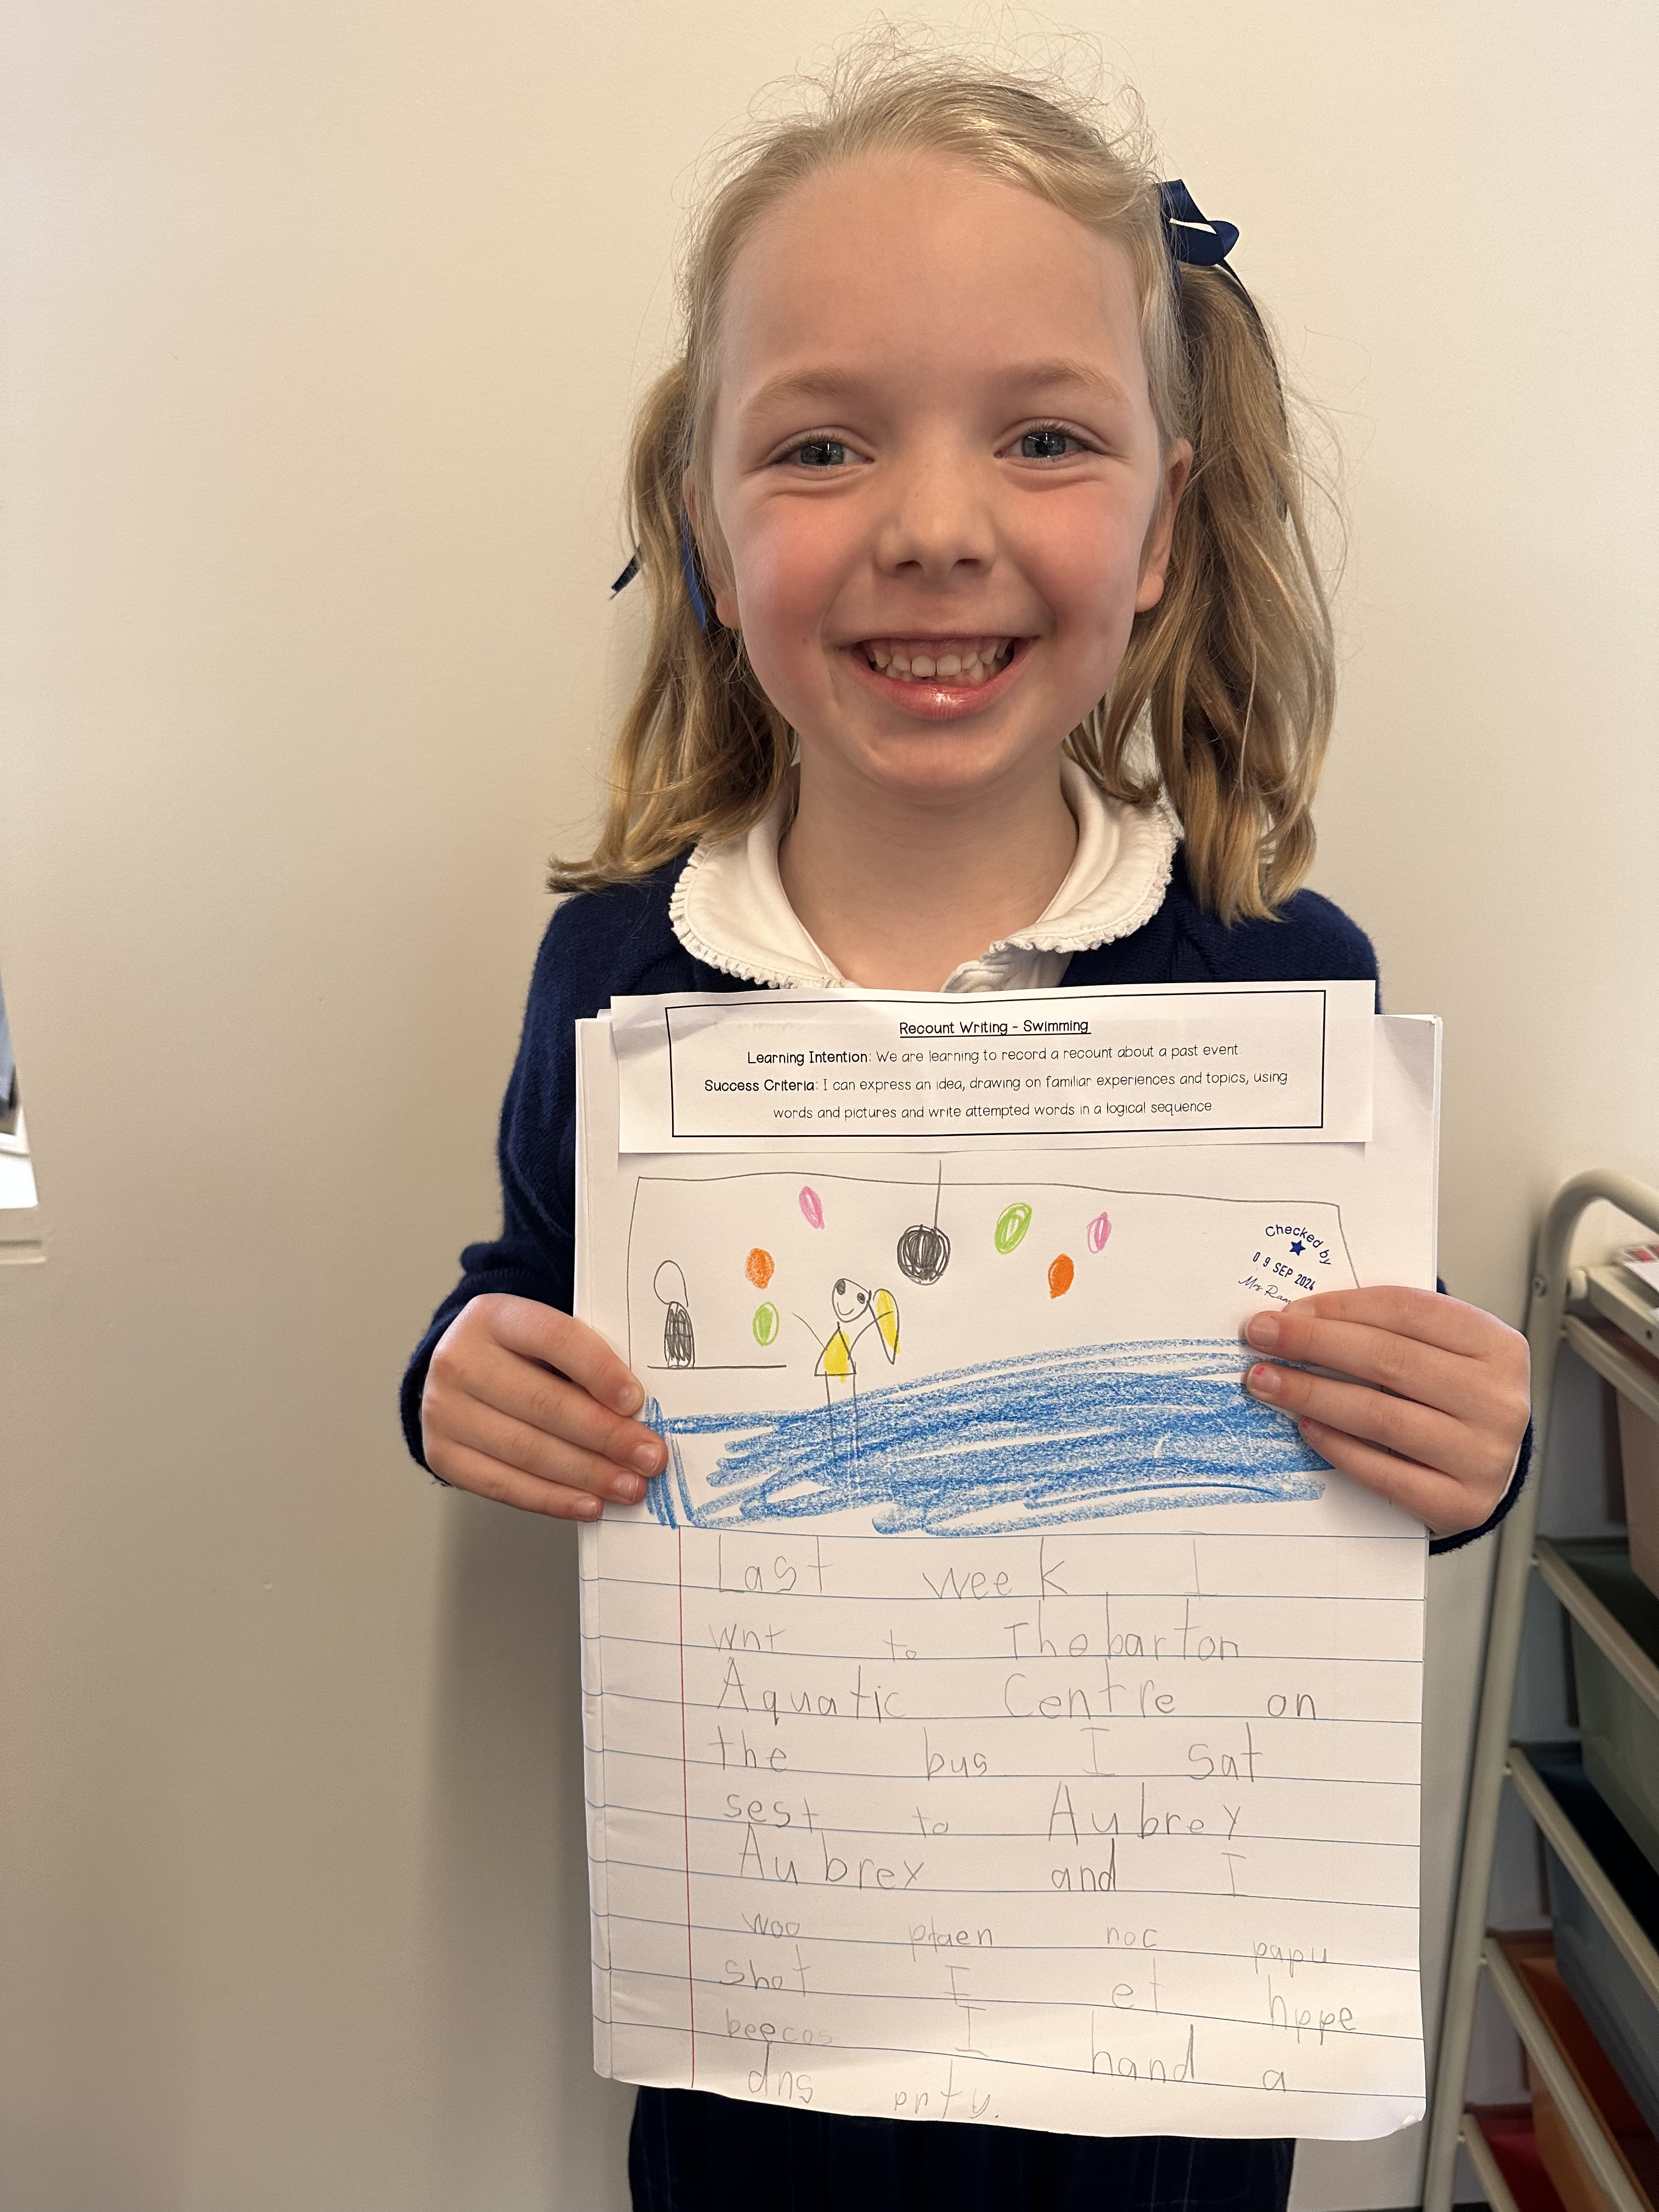 Recount Writing - Swimming
Learning Intention: We are learning to record a recount about a past event
Success Criteria: I can express an idea, drawing on familiar experiences and topics, using
words and pictures and write attempted words in a logical sequence
Checked by
09 SEP 2024
Mrs
Last week I
wnt to Thebarton
Aquatic Centre on
the bus I sat
sest to Aubrey
Aubrey and I
woo ptaen noc papu
shot I et hppe
beecos I hand a
dns prty.